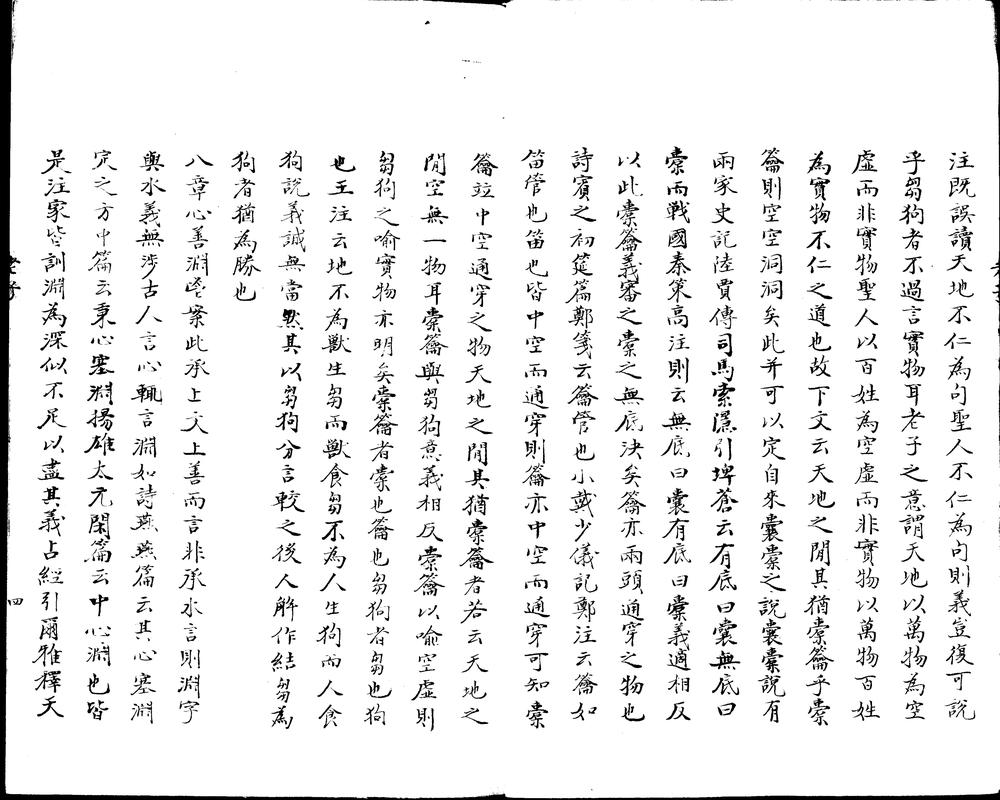 注既誤讀天地不仁為句聖人不仁為句則義豈復可説
乎芻狗者不過言實物耳老子之意謂天地以萬物為空
虛而非實物聖人以百姓為空虛而非實物以萬物百姓
為實物不仁之道也故下文云天地之閒其猶橐籥乎橐
籥則空空洞洞矣此并可以定自來囊橐之説囊橐説有
兩家史記陸賈傳司馬索隱引埤蒼云有底曰囊無底曰
橐而戰國秦策高注則云無底曰囊有底曰橐義適相反
以此橐籥義審之橐之無底決矣籥亦兩頭通穿之物也
詩賓之初筵篇鄭箋云籥管也小戴少儀記鄭注云籥如
笛管也笛也皆中空而通穿則籥亦中空而通穿可知橐
籥竝中空通穿之物天地之閒其猶橐籥者若云天地之
閒空無一物耳橐籥與芻狗意義相反橐籥以喻空虛則
芻狗之喻實物亦明矣橐籥者橐也籥也芻狗者芻也狗
也王注云地不為獸生芻而獸食芻不為人生狗而人食
狗説義誠無當然其以芻狗分言較之後人解作結芻為
狗者猶為勝也
八章心善淵鬯案此承上文上善而言非承水言則淵字
與水義無涉古人言心輒言淵如詩燕燕篇云其心塞淵
定之方中篇云秉心塞淵揚雄太元閑篇云中心淵也皆
是注家皆訓淵為深似不足以盡其義占經引爾雅釋天
四